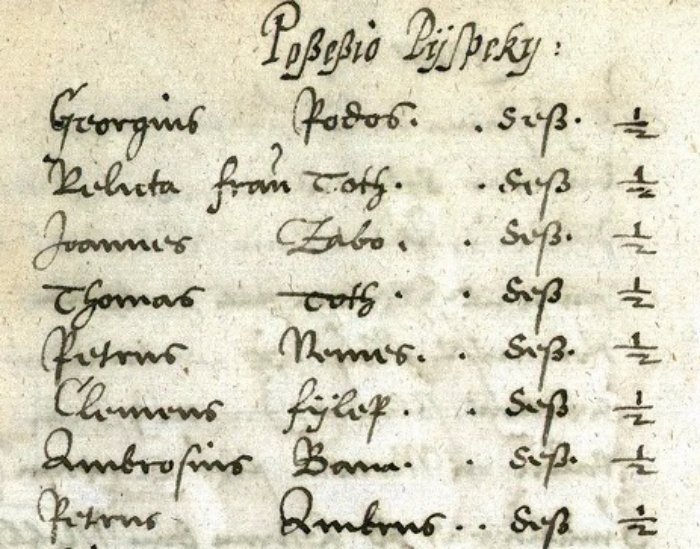 Poßeßio Pÿspeky:
Georgius Fodos. . deß. ½
Relicta fran Toth. . deß ½
Joannes Zabo. . deß. ½
Thomas Toth. . deß ½
Petrus Nemes. . deß. ½
Clemens fÿlep. . deß ½
Ambrosius Bann. . deß. ½
Petrus Ambrus.. deß ½